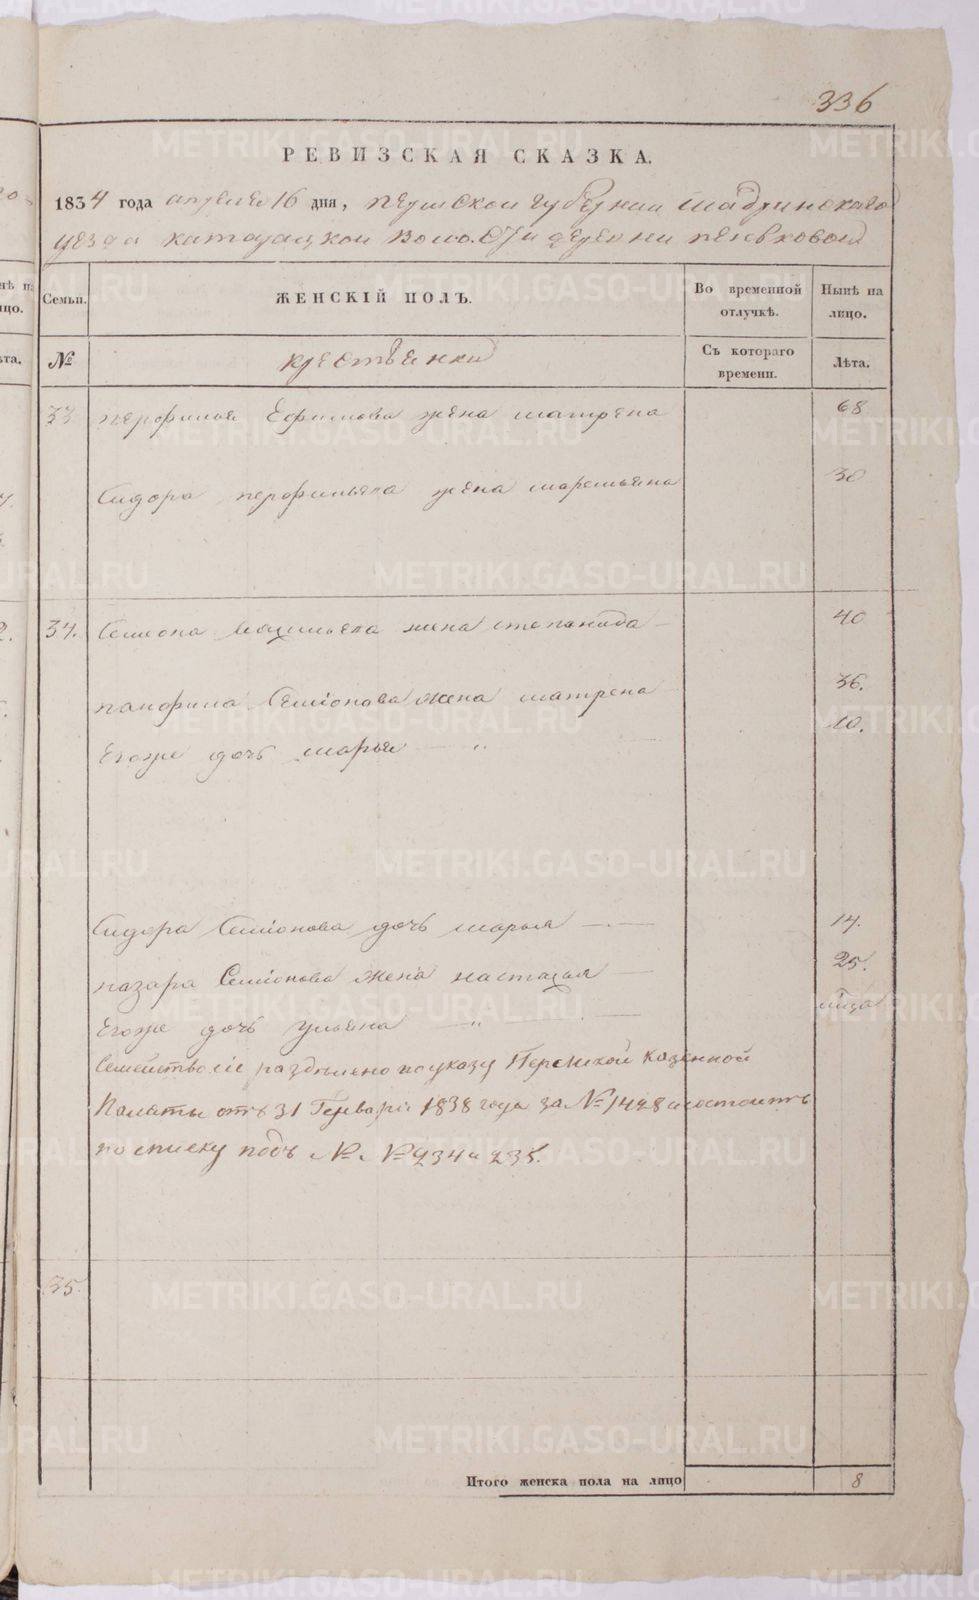 336
РЕВИЗСКАЯ СКАЗКА.
1834 года апреля 16 дня, пермской губернии шадринскаго
уезда катайской волости деревни
Семьи. ЖЕНСКІЙ ПОЛЪ. Во временной отлучкѣ. Нынѣ на лицо.
№ крестьянки Съ котораго времени. Лѣта.
33 перфилья Ефимова жена матрена 68
Сидора перфильева жена маремьяна 30
34. Семиона жена степанида 40
панфила Семіонова жена матрена 36.
Егоже дочь марья 10.
Сидора Семіонова дочь марья 14.
назара Семионова жена настасья 25.
Егоже дочь ульяна
Семейство сіе раздѣлено по указу Пермской казенной
Палаты отъ 31 Генваря 1838 года за № 1428 и состоитъ
по списку подъ №№ 234 и 235.
35.
Итого женска пола на лицо 8
METRIKI.GASO-URAL.RU